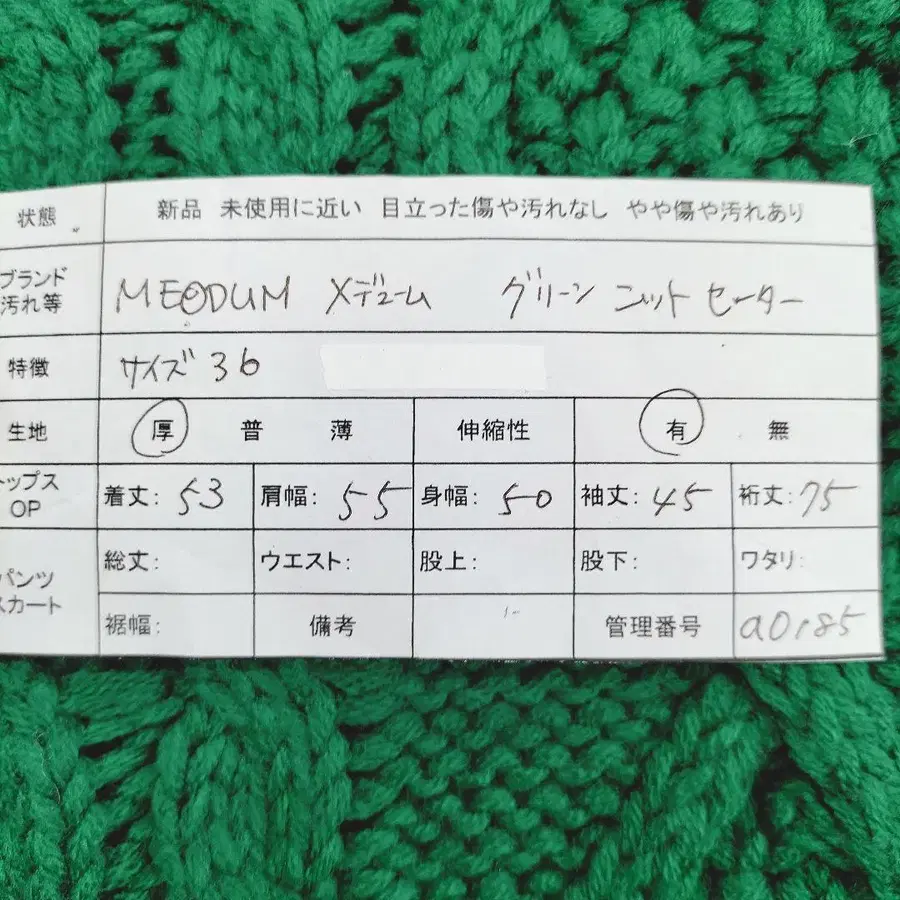 状態 新品 未使用に近い 目立った傷や汚れなし やや傷や汚れあり
ブランド
汚れ等 MEODUM メデューム グリーン ニット セーター
特徴 サイズ 36
生地 厚 普 薄 伸縮性 有 無
トップス
OP 着丈: 53 肩幅: 55 身幅: 50 袖丈: 45 裄丈: 75
パンツ
スカート 総丈: ウエスト: 股上: 股下: ワタリ:
裾幅: 備考 管理番号 a0185